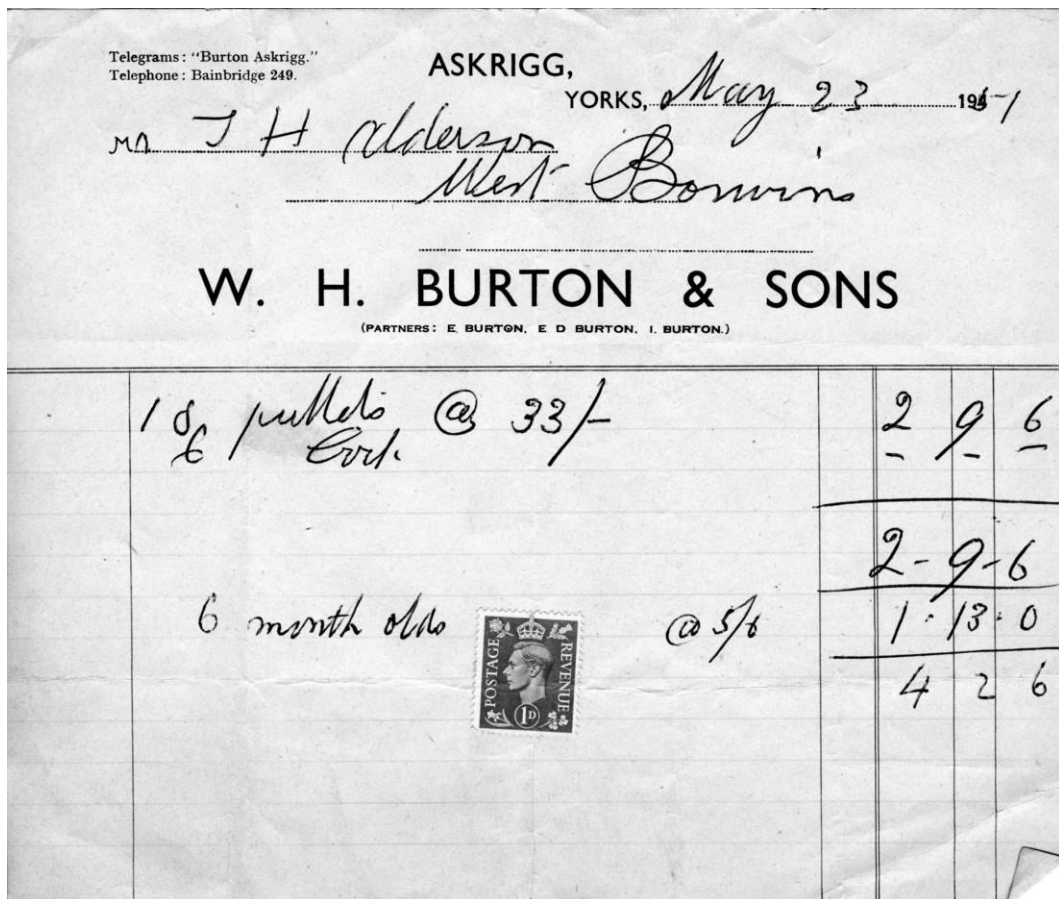 Telegrams: "Burton Askrigg."
Telephone: Bainbridge 249.
ASKRIGG,
YORKS, May 23 1951
Mr T H Alderson
West
W. H. BURTON & SONS
(PARTNERS: E. BURTON, E D BURTON. I. BURTON.)
18 pullets @ 33/- 2 9 6
6 - - -
2-9-6
6 month olds @ 5/6 1.13.0
4 2 6
POSTAGE REVENUE
1D